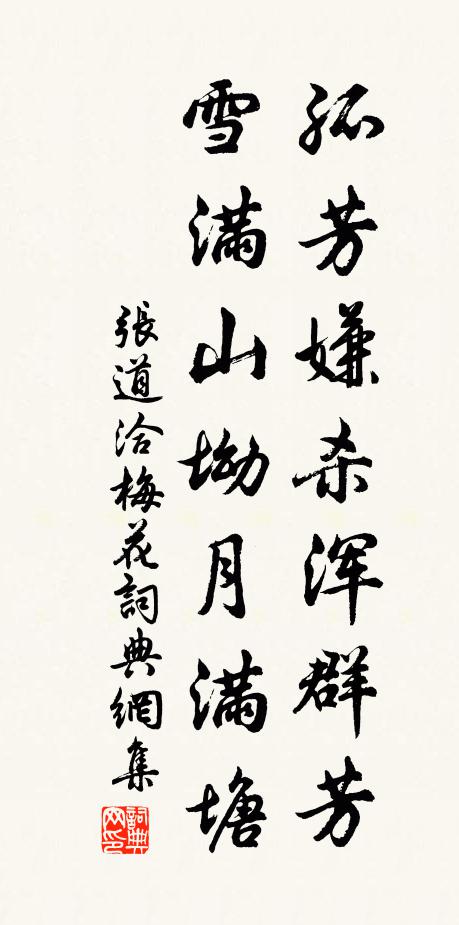 孤芳嫌杀浑群芳
雪满山坳月满塘
張道洽梅花詞典網集
詞典网印